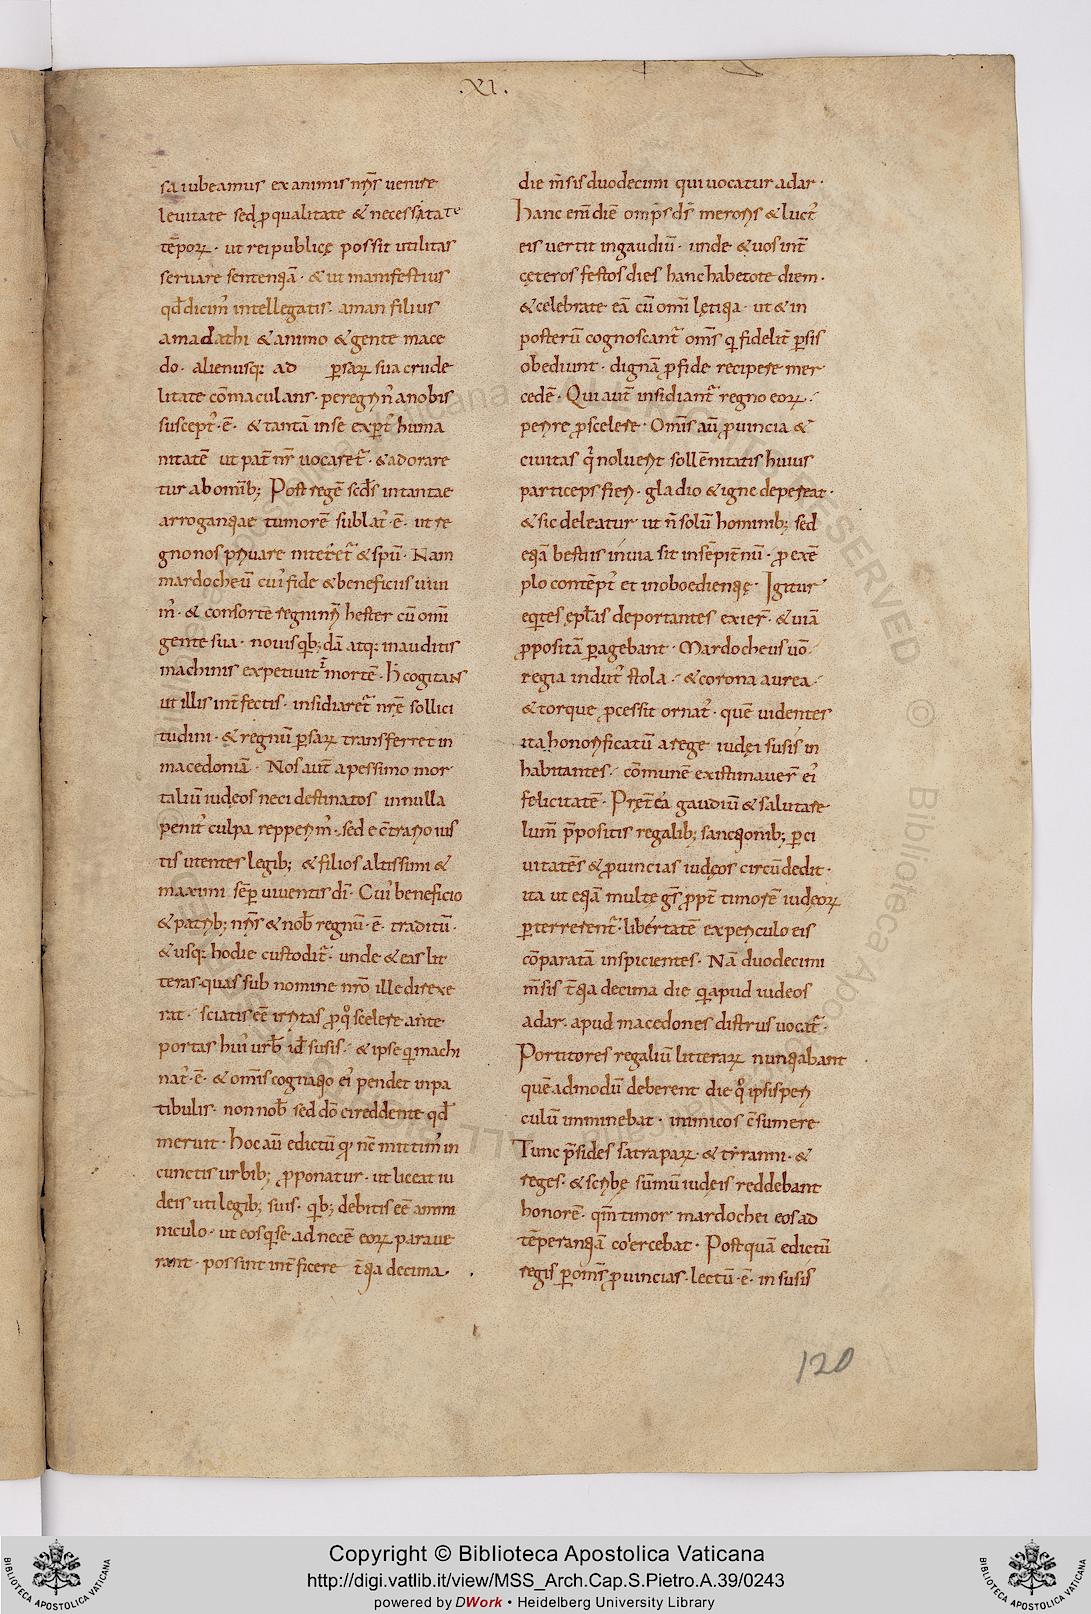 .XI.
sa iubeamus ex animis nr̅is uenire
leuitate sed p̲ qualitate & necessitate
te̅porꝝ · ut rei publicę possit utilitas
seruare sententiā · & ut manifestius
qđ dicim᷒ intellegatis · aman filius
amadathi & animo & gente mace
do · alienusq; ad ꝑsarꝝ sua crude
litate co̅maculans · peregrin᷒ a nobis
suscept᷒ · ē · & tantā in se expt᷒ huma
nitatē ut pat̅ nr̅ uocaret᷑ · & adorare
tur ab omnib; Post regē scd̅s in tantae
arrogantiae tumorē sublat᷒ · ē · ut re
gno nos priuare niteret᷑ & spu̅ · Nam
mardocheū cui᷒ fide & beneficiis uiui
m᷒ · & consortē regni nr̅i hester cū om̅i
gente sua · nouis qib;dā atq; inauditis
machinis expetiuit mortē · h̅ cogitans
ut illis int̅fectis · insidiaret᷑ nr̅ę sollici
tudini · & regnū ꝑsarꝝ transferret in
macedoniā · Nos aut̅ a pessimo mor
taliū iudeos neci destinatos in nulla
penit᷒ culpa repperim᷒ · sed e c̅trario ius
tis utentes legib; & filios altissimi &
maximi sēꝑ uiuentis dī · Cui᷒ beneficio
& patrib; nr̅is & nob̅ regnū · ē · traditū ·
& usq; hodie custodit᷑ · unde & eas lit
teras · quas sub nomine nr̅o ille direxe
rat · sciatis ee̅ irritas p̲ qo scelere ante
portas hui᷒ urb̅ id̅ susis · & ipse qi machi
nat᷒ · ē · & om̅is cognatio ei᷒ pendet in pa
tibulis · non nob̅ sed do̅ ei reddente qđ
meruit · hoc aū edictū qđ nc̅ mittim᷒ in
cunctis urbib; p̲ponatur · ut liceat iu
deis uti legib; suis · qib; debitis ee̅ ammi
niculo · ut eos qi se ad necē eorꝝ paraue
rant · possint int̅ficere t̅tia decima ·
die m̅sis duodecimi qui uocatur adar ·
Hanc em̅ diē omp̅s ds̅ meroris & luct᷒
eis uertit in gaudiū · unde & uos int̅
cęteros festos dies hanc habetote diem ·
& celebrate eā cū om̅i lętitia · ut & in
posterū cognoscant᷑ om̅s qi fidelit̅ ꝑsis
obediunt · dignā p̲ fide recipere mer
cedē · Qui aut̅ insidiant᷑ regno eorꝝ ·
perire p̲ scelere · Omīs aū p̲uincia &
ciuitas q̅ noluerit sollēnitatis huius
particeps fieri · gladio & igne depereat ·
& sic deleatur ut n̅ solū hominib; sed
etiā bestiis inuia sit in sēpit̅nū · p̲ exē
plo contēpt᷒ et inoboedientię · Igitur
eqites epl̅as deportantes exier̅ · & uiā
p̲positā ꝑagebant · Mardocheus uo̅
regia indut᷒ stola · & corona aurea ·
& torque p̲cessit ornat᷒ · quē uidentes
ita honorificatū a rege iudęi susis in
habitantes · co̅munē existimauer̅ ei᷒
felicitatē · Pręt̅ ea gaudiū & salutare
lum̅ p̅positis regalib; sanctionib; ꝑ ci
uitatēs & p̲uincias iudęos circūdedit ·
ita ut etiā multę gr̅s p̲pt̅ timorē iudęorꝝ
ꝑterrerent᷑ · libertatē ex periculo eis
co̅paratā inspicientes · Nā duodecimi
m̅sis t̅tia decima die qi apud iudeos
adar · apud macedones distrus uocat᷑ ·
Portitores regaliū litterarꝝ nuntiabant
quēadmodū deberent die qo ipsis peri
culū imminebat · inimicos c̅sumere
Tunc p̅sides satraparꝝ · & tiranni · &
reges · & scribę sūmū iudęis reddebant
honorē · qm̅ timor mardochei eos ad
tēperantiā coercebat · Postquā edictū
regis ꝑ om̅s p̲uincias · lectū · ē · in susis
120
Copyright © Biblioteca Apostolica Vaticana
http://digi.vatlib.it/view/MSS_Arch.Cap.S.Pietro.A.39/0243
powered by DWork • Heidelberg University Library